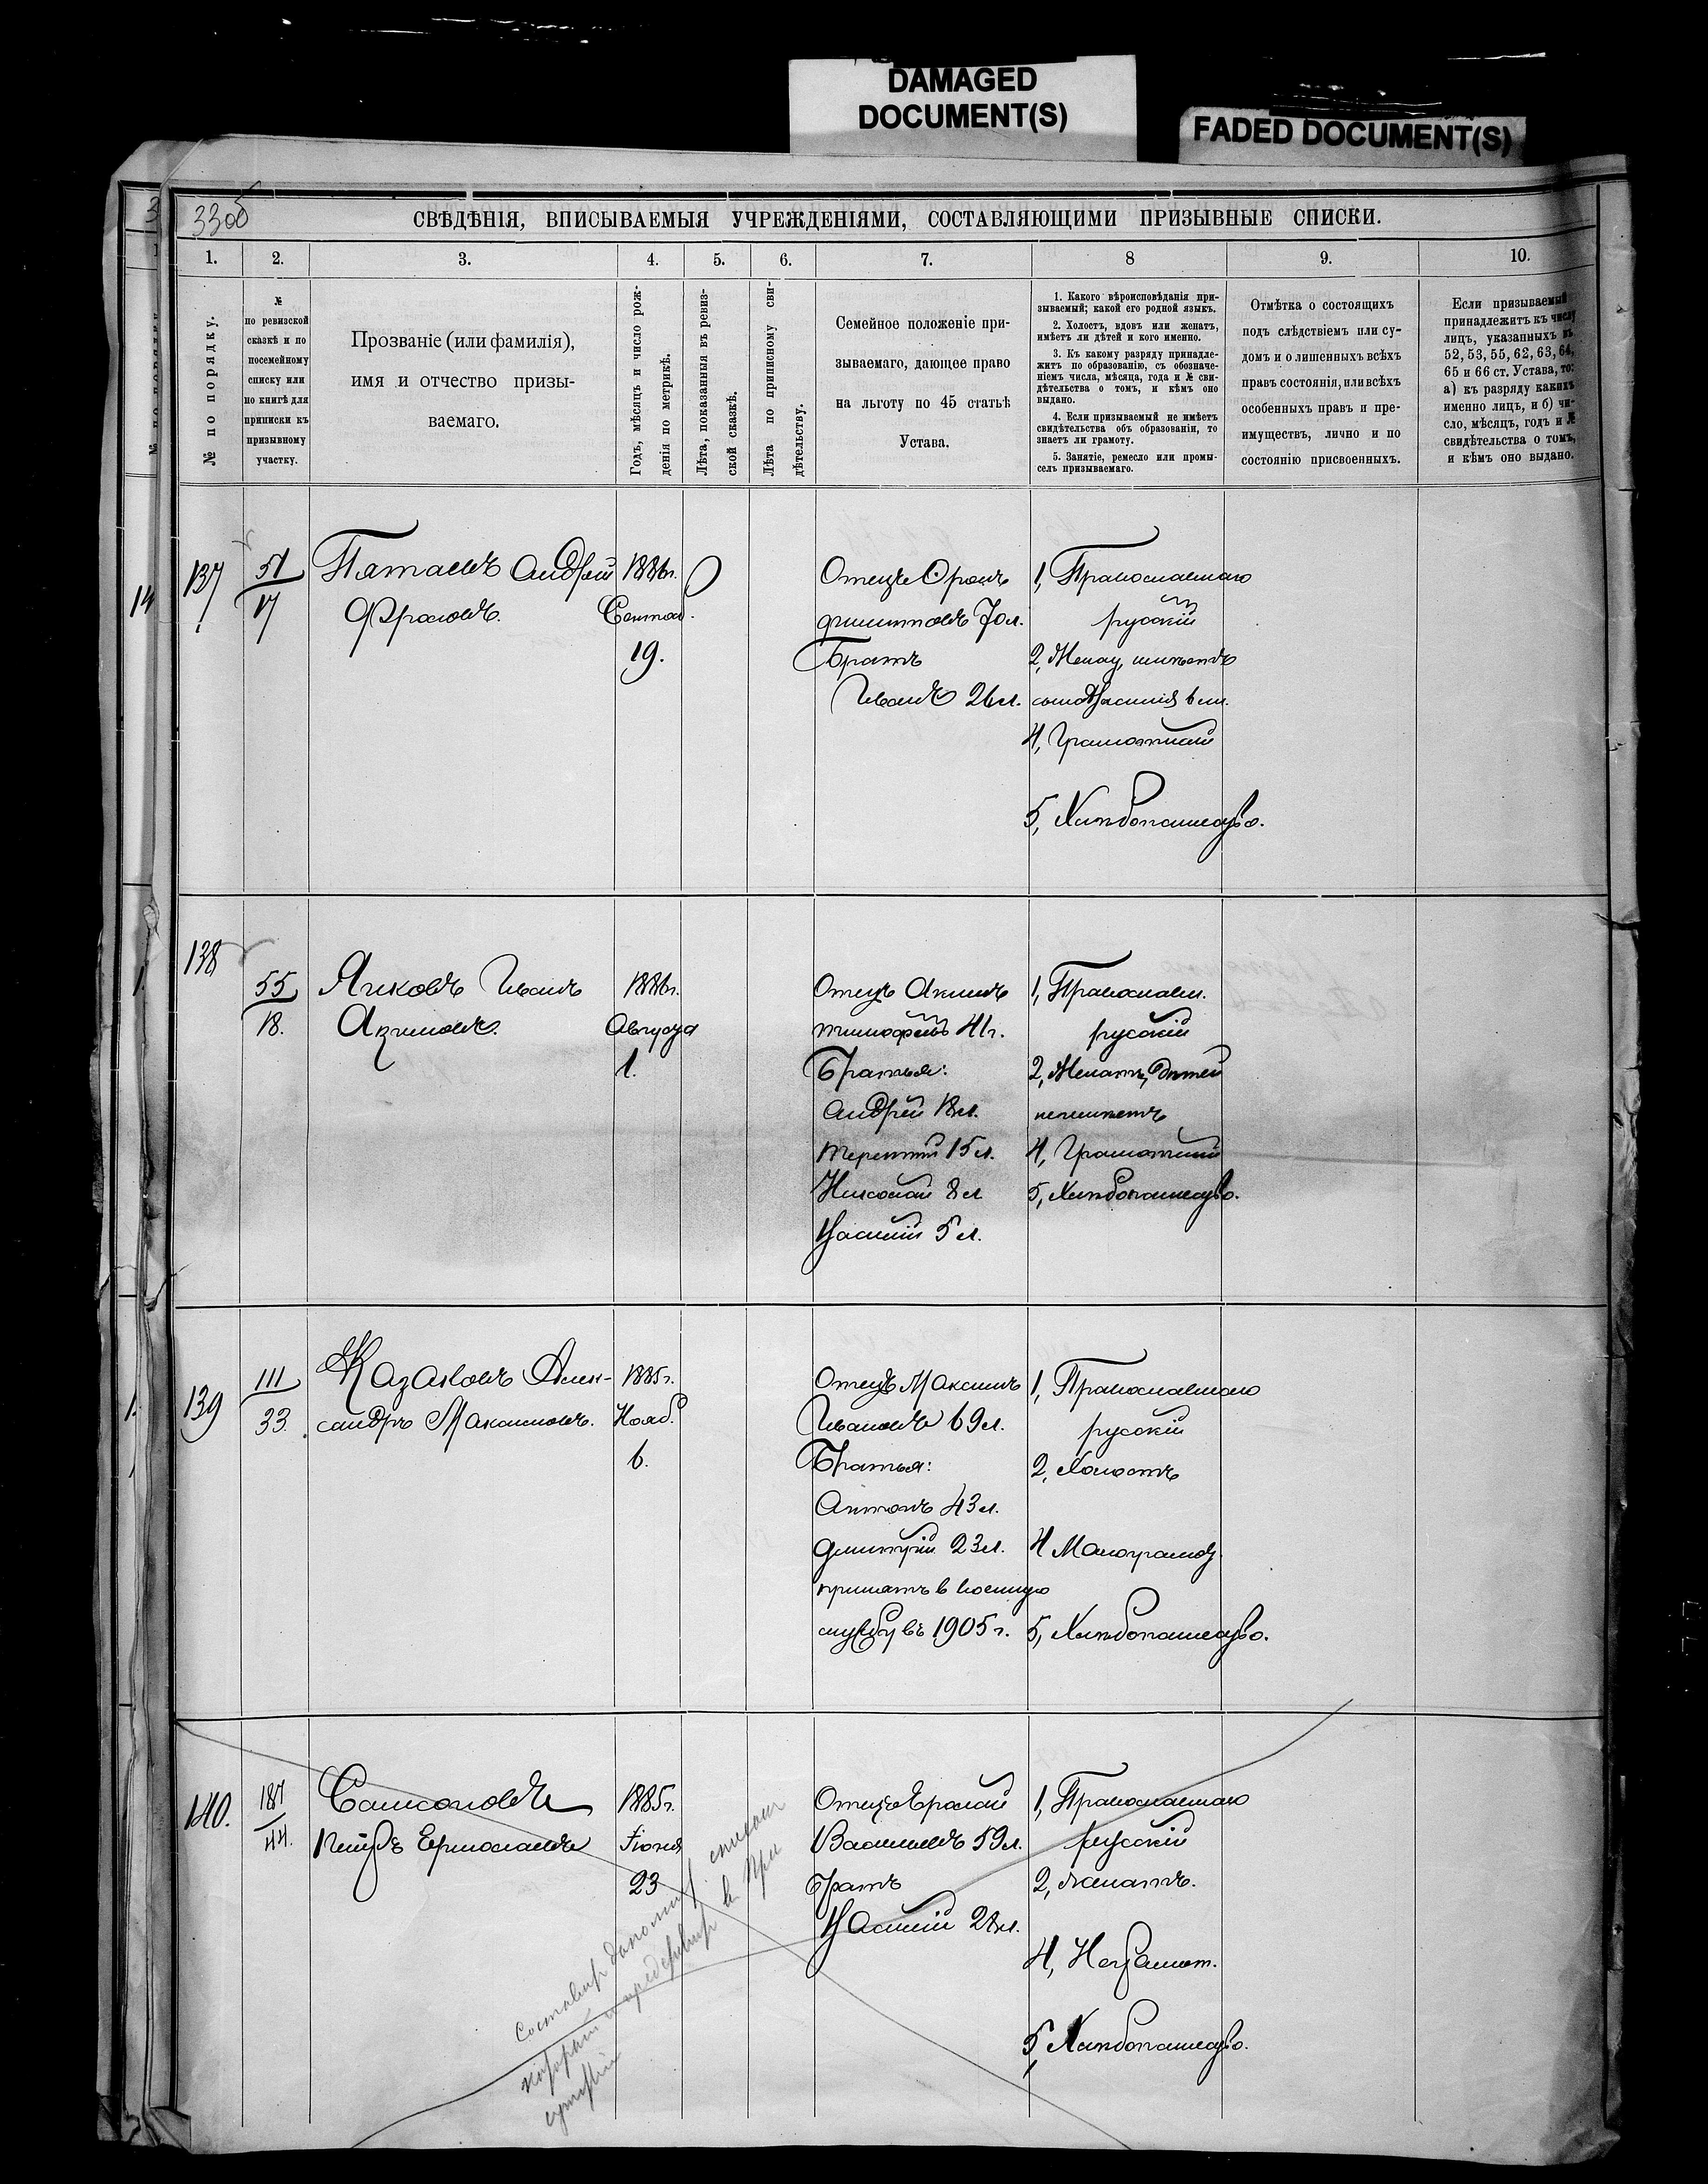 DAMAGED
DOCUMENT(S)
FADED DOCUMENT(S)
33об
СВѢДѢНІЯ, ВПИСЫВАЕМЫЯ УЧРЕЖДЕНІЯМИ, СОСТАВЛЯЮЩИМИ ПРИЗЫВНЫЕ СПИСКИ.
1. 2. 3. 4. 5. 6. 7. 8 9. 10.
№ по порядку.
№
по ревизской
сказкѣ и по
посемейному
списку или
по книгѣ для
приписки къ
призывному
участку.
Прозваніе (или фамилія),
имя и отчество призы-
ваемаго.
Годъ, мѣсяцъ и число рож-
денія по метрикѣ.
Лѣта, показанныя въ ревиз-
ской сказкѣ.
Лѣта по приписному сви-
дѣтельству.
Семейное положеніе при-
зываемаго, дающее право
на льготу по 45 статьѣ
Устава.
1. Какого вѣроисповѣданія при-
зываемый; какой его родной языкъ.
2. Холостъ, вдовъ или женатъ,
имѣетъ ли дѣтей и кого именно.
3. Къ какому разряду принадле-
житъ по образованію, съ обозначе-
ніемъ числа, мѣсяца, года и № сви-
дѣтельства о томъ, и кѣмъ оно
выдано.
4. Если призываемый не имѣетъ
свидѣтельства объ образованіи, то
знаетъ ли грамоту.
5. Занятіе, ремесло или промы-
селъ призываемаго.
Отмѣтка о состоящихъ
подъ слѣдствіемъ или су-
домъ и о лишенныхъ всѣхъ
правъ состоянія, или всѣхъ
особенныхъ правъ и пре-
имуществъ, лично и по
состоянію присвоенныхъ.
Если призываемый
принадлежитъ къ числу
лицъ, указанныхъ въ
52, 53, 55, 62, 63, 64,
65 и 66 ст. Устава, то:
а) къ разряду какихъ
именно лицъ, и б) чи-
сло, мѣсяцъ, годъ и №
свидѣтельства о томъ,
и кѣмъ оно выдано.
137
51
17
Андрей
Фроловъ.
1886г.
Сентяб.
19.
Отецъ Фролъ
70л.
Братъ
Иванъ 26л.
1, Православнаго
русскій
2,
4, Грамотный
5, Хлѣбопашество.
138
55
18.
Яиковъ Иванъ
Акимовъ.
1886г.
Августа
1.
Отецъ Акимъ
Тимофѣевъ 41г.
Братья:
Андрей 18л.
Терентій 15л.
Николай 8л
Василій 5л.
1, Православн.
русскій
2, Женатъ, дѣтей
неимѣетъ
4, Грамотный
5, Хлѣбопашество.
139
111
33.
Казаковъ Алек-
сандръ Максимовъ.
1885г.
Нояб.
6.
Отецъ Максимъ
Ивановъ 69л.
Братья:
Антонъ 43л.
Дмитрій 23л.
принятъ в военную
службу въ 1905г.
1, Православнаго
русскій
2, Холостъ
4 Малограмот.
5, Хлѣбопашество.
140.
187
44.
Самсоновъ
Петръ Ермолаевъ
1885г.
Іюня
23
Отецъ Ермолай
Васильевъ 59л.
Братъ
Василій 28л.
1, Православнаго
русскій
2, женатъ.
4, Неграмот.
5, Хлѣбопашество.